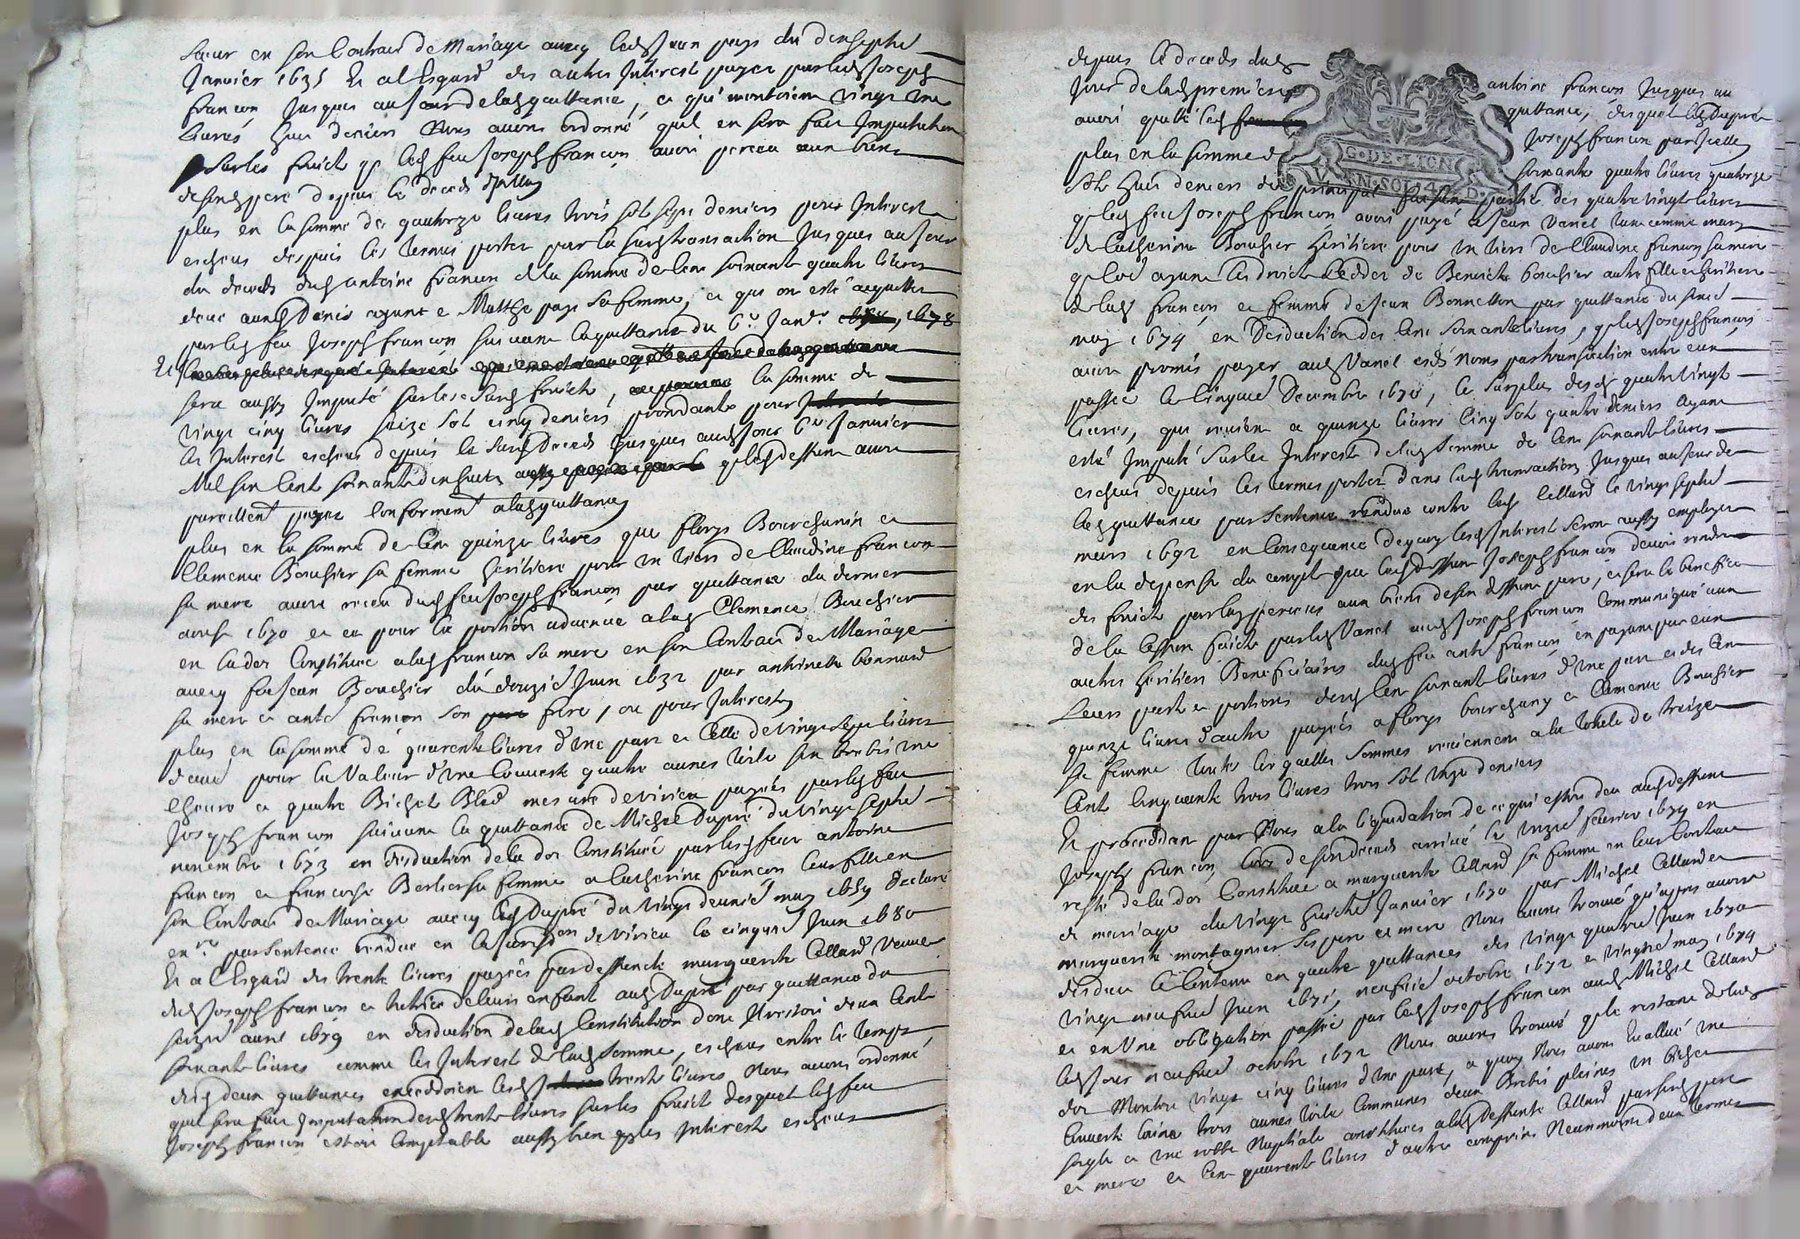 sœur en son Contract de Mariage avecq ledit Jean page du dixseptie
Janvier 1635 Et a l'Esgard des autres Interest payez par ledit Joseph
francon Jusques au Jour de lad quittance, ce qui montoient vingt une
livres huit deniers Nous avons ordonné qu'il en sera fait Imputation
Sur les fruicts q led feu Joseph francon avoit perceu aux biens
de sond pere depuis le deceds
plus en la somme de quatorze livres trois sol seze deniers pour Interest
escheus despuis les termes portez par la susd transaction Jusques au Jour
du deceds dud antoine francon de la somme de Cent soixante quatre livres
deue aud Denis ayant e Matthe page sa femme, ce qui ont esté acquittez
par led feu Joseph francon suivant la quittance du 6e Janv 1678
Et
sera aussy Imputé sur lesd susd fruicts, la somme de
vingt cinq livres seize sol cinq deniers procedants pour
les Interest escheus depuis le susd deceds Jusques aud Jour 6e Janvier
Mil six Cents soixante dix huit q led deffunt avoit
pareillemt payez Conformemt a lad quittance
plus en la somme de Cent quinze livres que florys Bourchanin et
Clemence Bouchier sa femme heritiere pour un tiers de Claudine francon
sa mere avoit receu dud feu Joseph francon par quittance du dernier
aoust 1670 et ce pour la portion advenue a lad Clemence Bouchier
en la dot Constituee a lad francon sa mere en son Contract de Mariage
avecq feu Jean Bouchier du douzie Juin 1632 par antoinette bonnard
sa mere et anthe francon son frere, ou pour Interest
plus en la somme de quarente livres d'une part et Celle de vingt sept livres
d'autre pour la Valeur d'une Couverte quatre aunes toile six brebis une
Chevre et quatre Bichet Bled mesure de virieu payés par led feu
Joseph francon suivant la quittance de Michel Dupré du vingt septie
novembre 1673 en desduction de la dot Constituée par led feux antoine
francon et francoise Berlier sa femme a Catherine francon leur fille en
son Contract de Mariage avecq led Dupré du vingt deuxie may 1659 declaré
en re par sentence rendue en la Jurisdon de Virieu le cinquie Juin 1680
Et a l'Esgard des trente livres payées par deffuncte marguerite Cellard veuve
dud Joseph francon et tutrice de leurs enfant aud Dupré par quittance du
seizie avril 1679 en desduction de lad Constitution dont il restoit deux Cents
soixante livres comme les Interest de lad somme, escheus entre le temps
desd deux quittances excedoient lesd trente livres Nous avons ordonné
que sera fait Imputation desd trente livres sur les fruict desquel led feu
Joseph francon estoit Comptable aussy bien q les Interest escheus
depuis le deceds dud antoine francon Jusques au
Jour de lad premiere quittance, desquel led Dupré
avoit quitté led Joseph francon par icelle
plus en la somme de soixante quatre livres quatorze
sol huit deniers du principal faisant partie des quatre vingt livres
q led feu Joseph francon avoit payé a Jean Vanel tant comme mary
de Catherine Bouchier heritiere pour un tiers de Claudine francon sa mere
q Coe ayant les droits Cedder de Benoicte bouchier autre fille et heritiere
de lad francon et femme de Jean Bonnetton par quittance du
may 1674 en desduction des Cent soixante livres, q led Joseph francon
avoit promis payer aud Vanel esd Noms par transaction entre eux
passée le Cinquie Decembre 1670, le surplus desd quatre vingt
livres, qui revient a quinze livres Cinq sol quatre deniers ayant
esté Imputé sur les Interest de lad somme de Cent soixante livres
escheus depuis les termes portez dans lad transaction Jusques au Jour de
lad quittance par sentence rendue contre led Cellard le vingt septie
mars 1692 en Consequence de quoy lesd Interest seront aussy employez
en la depense du compte que led deffunt Joseph francon devoit rendre
des fruicts par luy perceus aux biens de son deffunt pere, et sera le benefice
de la Cession faicte par led Vanel aud Joseph francon Communiqué aux
autres heritiers Beneficiaires dud feu anthe francon en payant par eux
Leurs parts et portions desd Cent soixante livres d'une part et des Cent
quinze livres d'autre payées a florys bourchany et Clemence Bouchier
sa femme toute lesquelles sommes reviennent a la totale de treize
Cent Cinquante trois livres trois sol unze deniers
Et proceddant par Nous a la liquidation de ce qui estoit deu aud deffunt
Joseph francon lors de son deceds arrivé le unzie feuvrier 1679 en
reste de la dot Constituée a marguerite Cellard sa femme en leur Contract
de mariage du vingt huictie Janvier 1670 par Michel Cellard et
marguerite montagnier ses pere et mere Nous avons trouvé qu'apres avoir
desduit le Contenu en quatre quittances des vingt quatrie Juin 1670
vingt neufvie Juin 1671, neufvie octobre 1672 et vingtie may 1674
et en Une obligation passée par led Joseph francon aud Michel Cellard
led Jour neufvie octobre 1672 Nous avons trouvé q le restant de lad
dot Montoit vingt cinq livres d'une part, a quoy Nous avons Evallué une
Couverte laine trois aunes toile Communes deux Brebis pleines un bichet
seigle et une robbe Nuptiale constituees a lad deffunte Cellard par sesd pere
et mere et Cent quarente livres d'autre comprins Neantmoins deux termes
G. DE. LION
VN. SOL. 4. D.